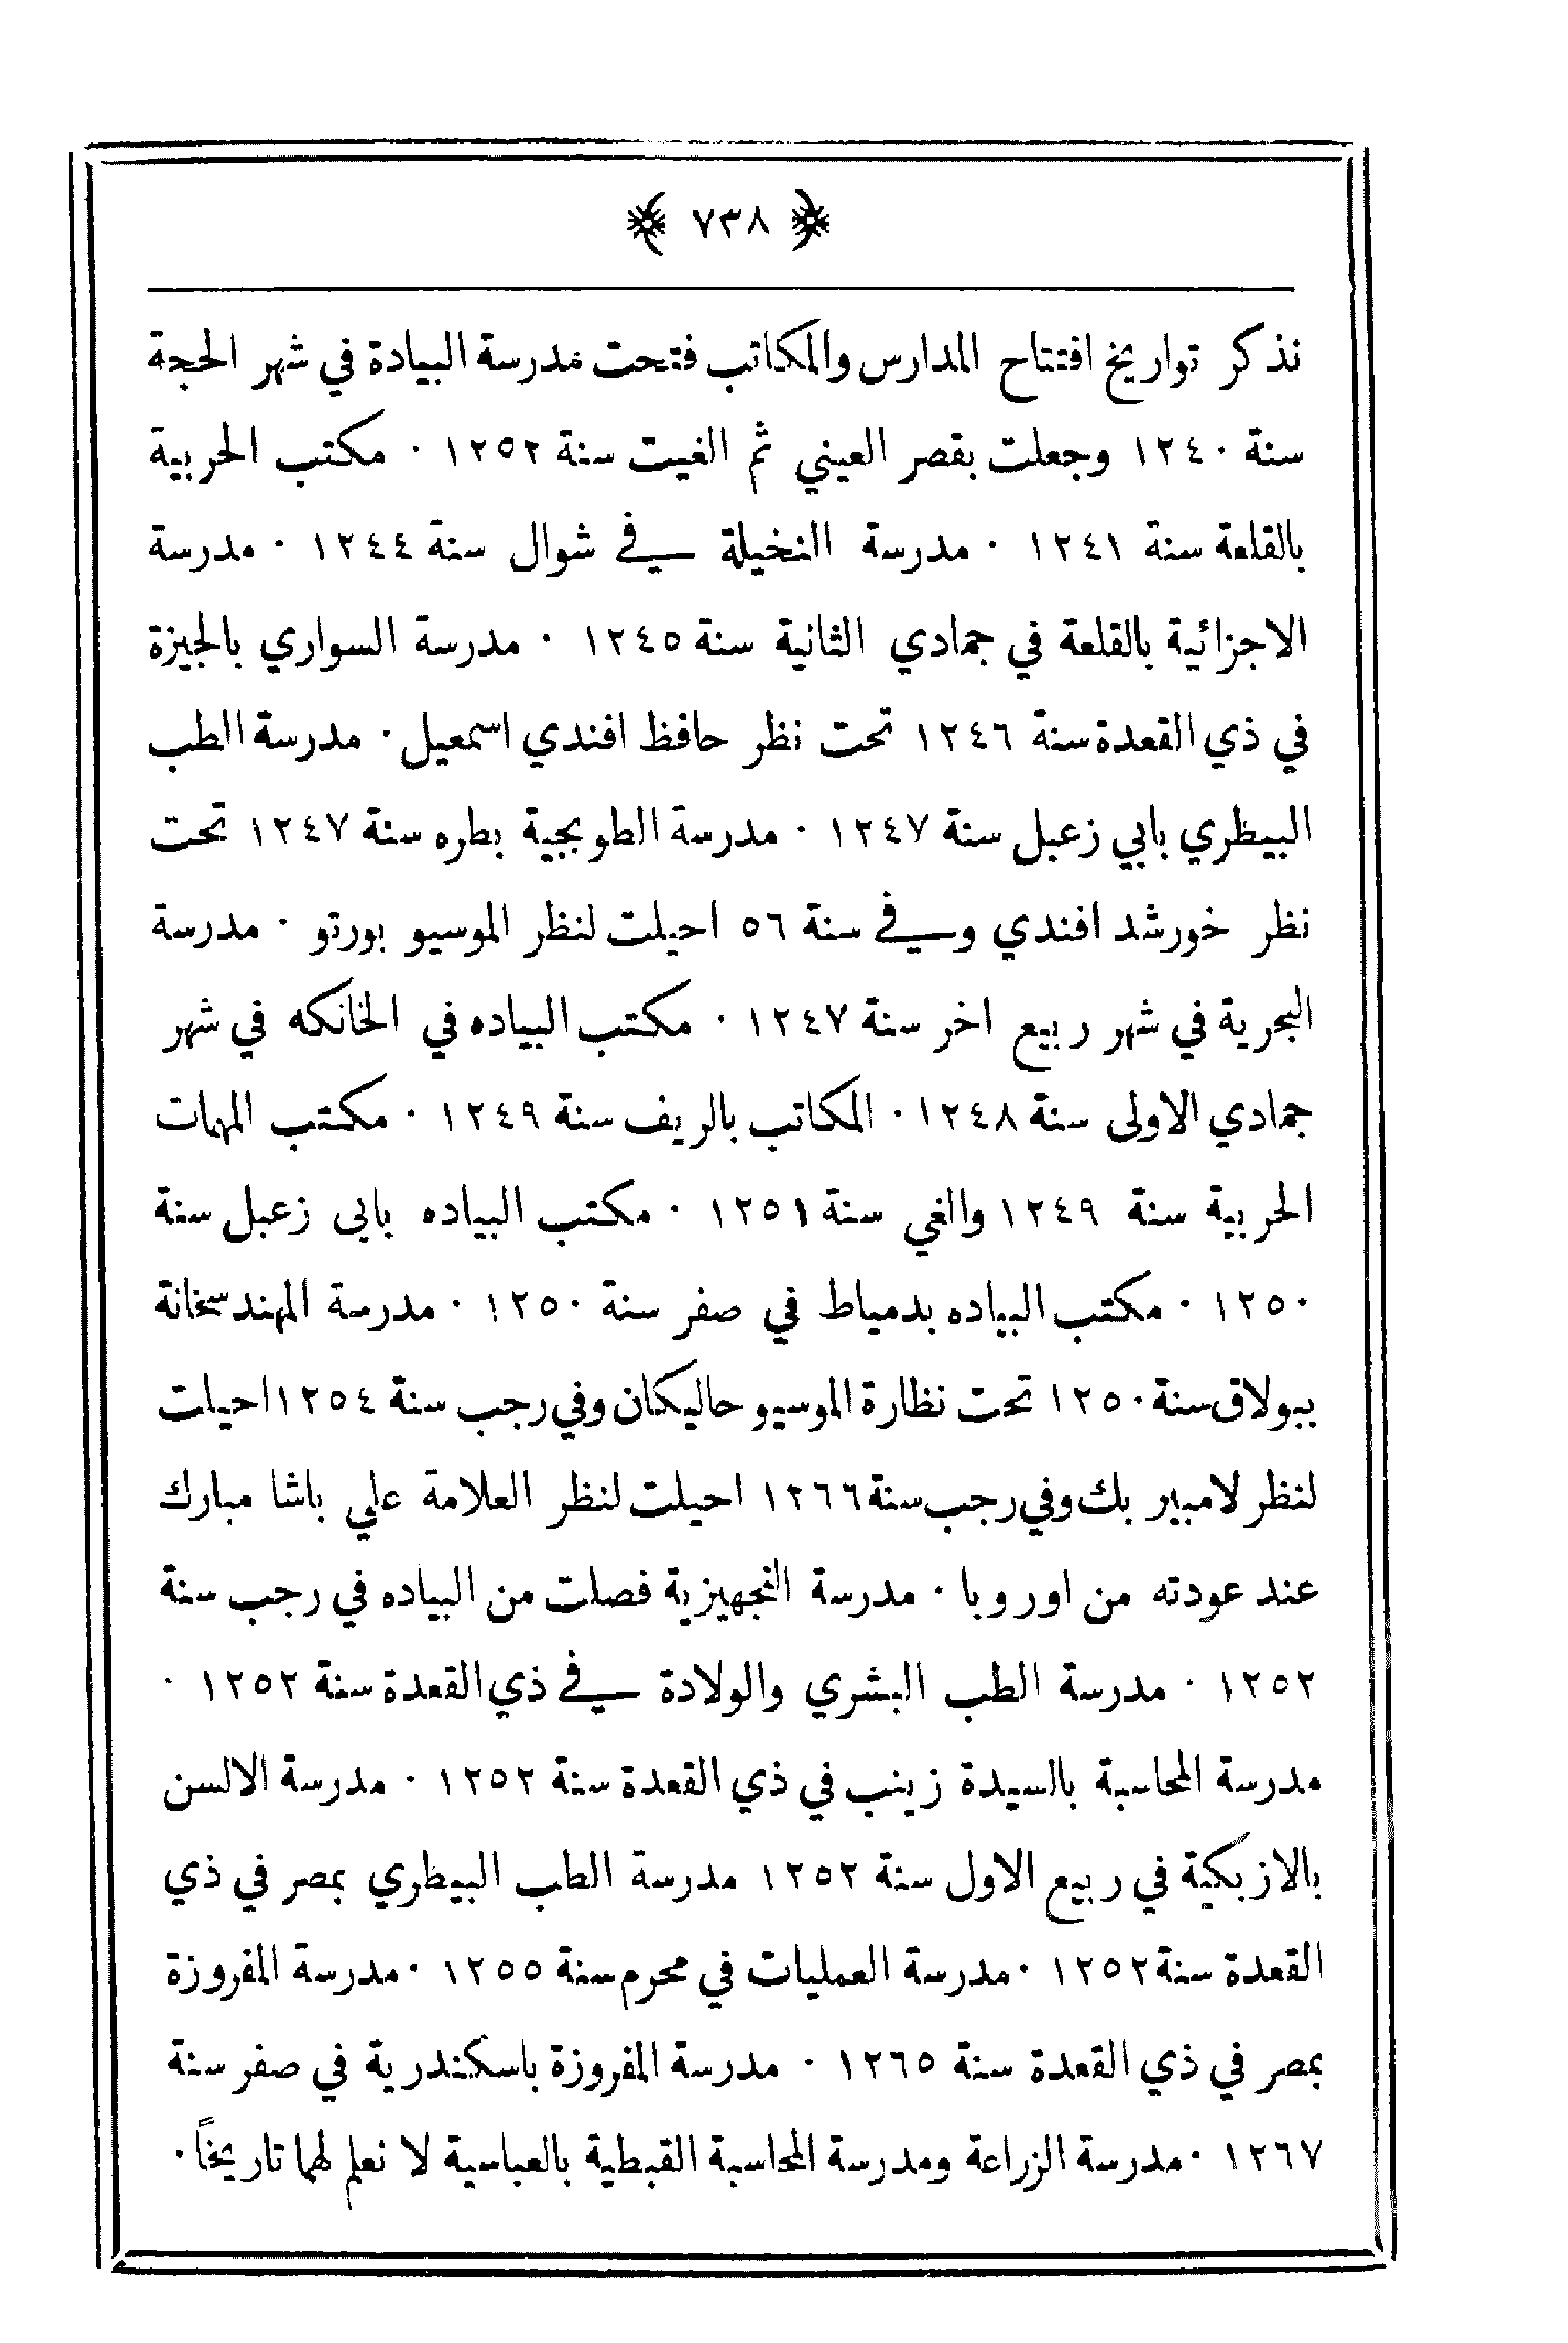 ﴿ ٧٣٨ ﴾
نذكر تواريخ افتتاح المدارس والمكاتب فتحت مدرسة البيادة في شهر الحجة
سنة ١٢٤٠ وجعلت بقصر العيني ثم الغيت سنة ١٢٥٢ ٠ مكتب الحربية
بالقلعة سنة ١٢٤١ ٠ مدرسة النخيلة في شوال سنة ١٢٤٤ ٠ مدرسة
الاجزائية بالقلعة في جمادي الثانية سنة ١٢٤٥ ٠ مدرسة السواري بالجيزة
في ذي القعدة سنة ١٢٤٦ تحت نظر حافظ افندي اسمعيل ٠ مدرسة الطب
البيظري بابي زعبل سنة ١٢٤٧ ٠ مدرسة الطوبجية بطره سنة ١٢٤٧ تحت
نظر خورشد افندي وفي سنة ٥٦ احيلت لنظر الموسيو بورتو ٠ مدرسة
البحرية في شهر ربيع اخر سنة ١٢٤٧ ٠ مكتب البياده في الخانكه في شهر
جمادي الاولى سنة ١٢٤٨ ٠ المكاتب بالريف سنة ١٢٤٩ ٠ مكتب المهمات
الحربية سنة ١٢٤٩ والغي سنة ١٢٥١ ٠ مكتب البياده بابي زعبل سنة
١٢٥٠ ٠ مكتب البياده بدمياط في صفر سنة ١٢٥٠ ٠ مدرسة المهندسخانة
ببولاق سنة ١٢٥٠ تحت نظارة الموسيو حاليكان وفي رجب سنة ١٢٥٤ احيلت
لنظر لامبير بك وفي رجب سنة ١٢٦٦ احيلت لنظر العلامة علي باشا مبارك
عند عودته من اوروبا ٠ مدرسة التجهيزية فصلت من البياده في رجب سنة
١٢٥٢ ٠ مدرسة الطب البشري والولادة في ذي القعدة سنة ١٢٥٢ ٠
مدرسة المحاسبة بالسيدة زينب في ذي القعدة سنة ١٢٥٢ ٠ مدرسة الالسن
بالازبكية في ربيع الاول سنة ١٢٥٢ مدرسة الطب البيظري بمصر في ذي
القعدة سنة ١٢٥٢ ٠ مدرسة العمليات في محرم سنة ١٢٥٥ ٠ مدرسة المفروزة
بمصر في ذي القعدة سنة ١٢٦٥ ٠ مدرسة المفروزة باسكندرية في صفر سنة
١٢٦٧ ٠ مدرسة الزراعة ومدرسة المحاسبة القبطية بالعباسية لا نعلم لهما تاريخاً ٠